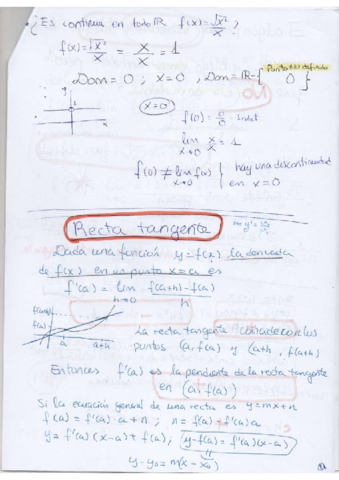 ¿Es continua en todo ℝ f(x)=√x²/x ?
f(x)=√x²/x = x/x = 1
Dom=0 ; x=0 , Dom=ℝ-{0}
x=0
f(0)= 0/0 Indet
lim x→0 x/x = 1
f(0) ≠ lim x→0 f(x) } hay una descontinuidad en x=0
Recta tangente
Dada una función y=f(x) la derivada
de f(x) en un punto x=a es
f'(a) = lim h→0 f(a+h)-f(a) / h
f(a+h)
f(a)
a a+h
La recta tangente con los
puntos (a, f(a)) y (a+h, f(a+h))
Entonces f'(a) es la pendiente de la recta tangente
en (a, f(a))
Si la ecuación general de una recta es y=mx+n
f(a) = f'(a)·a+n ; n = f(a)+f'(a)a
y = f'(a)(x-a)+f(a) ; y-f(a)=f'(a)(x-a)
y-y₀=m(x-x₀)